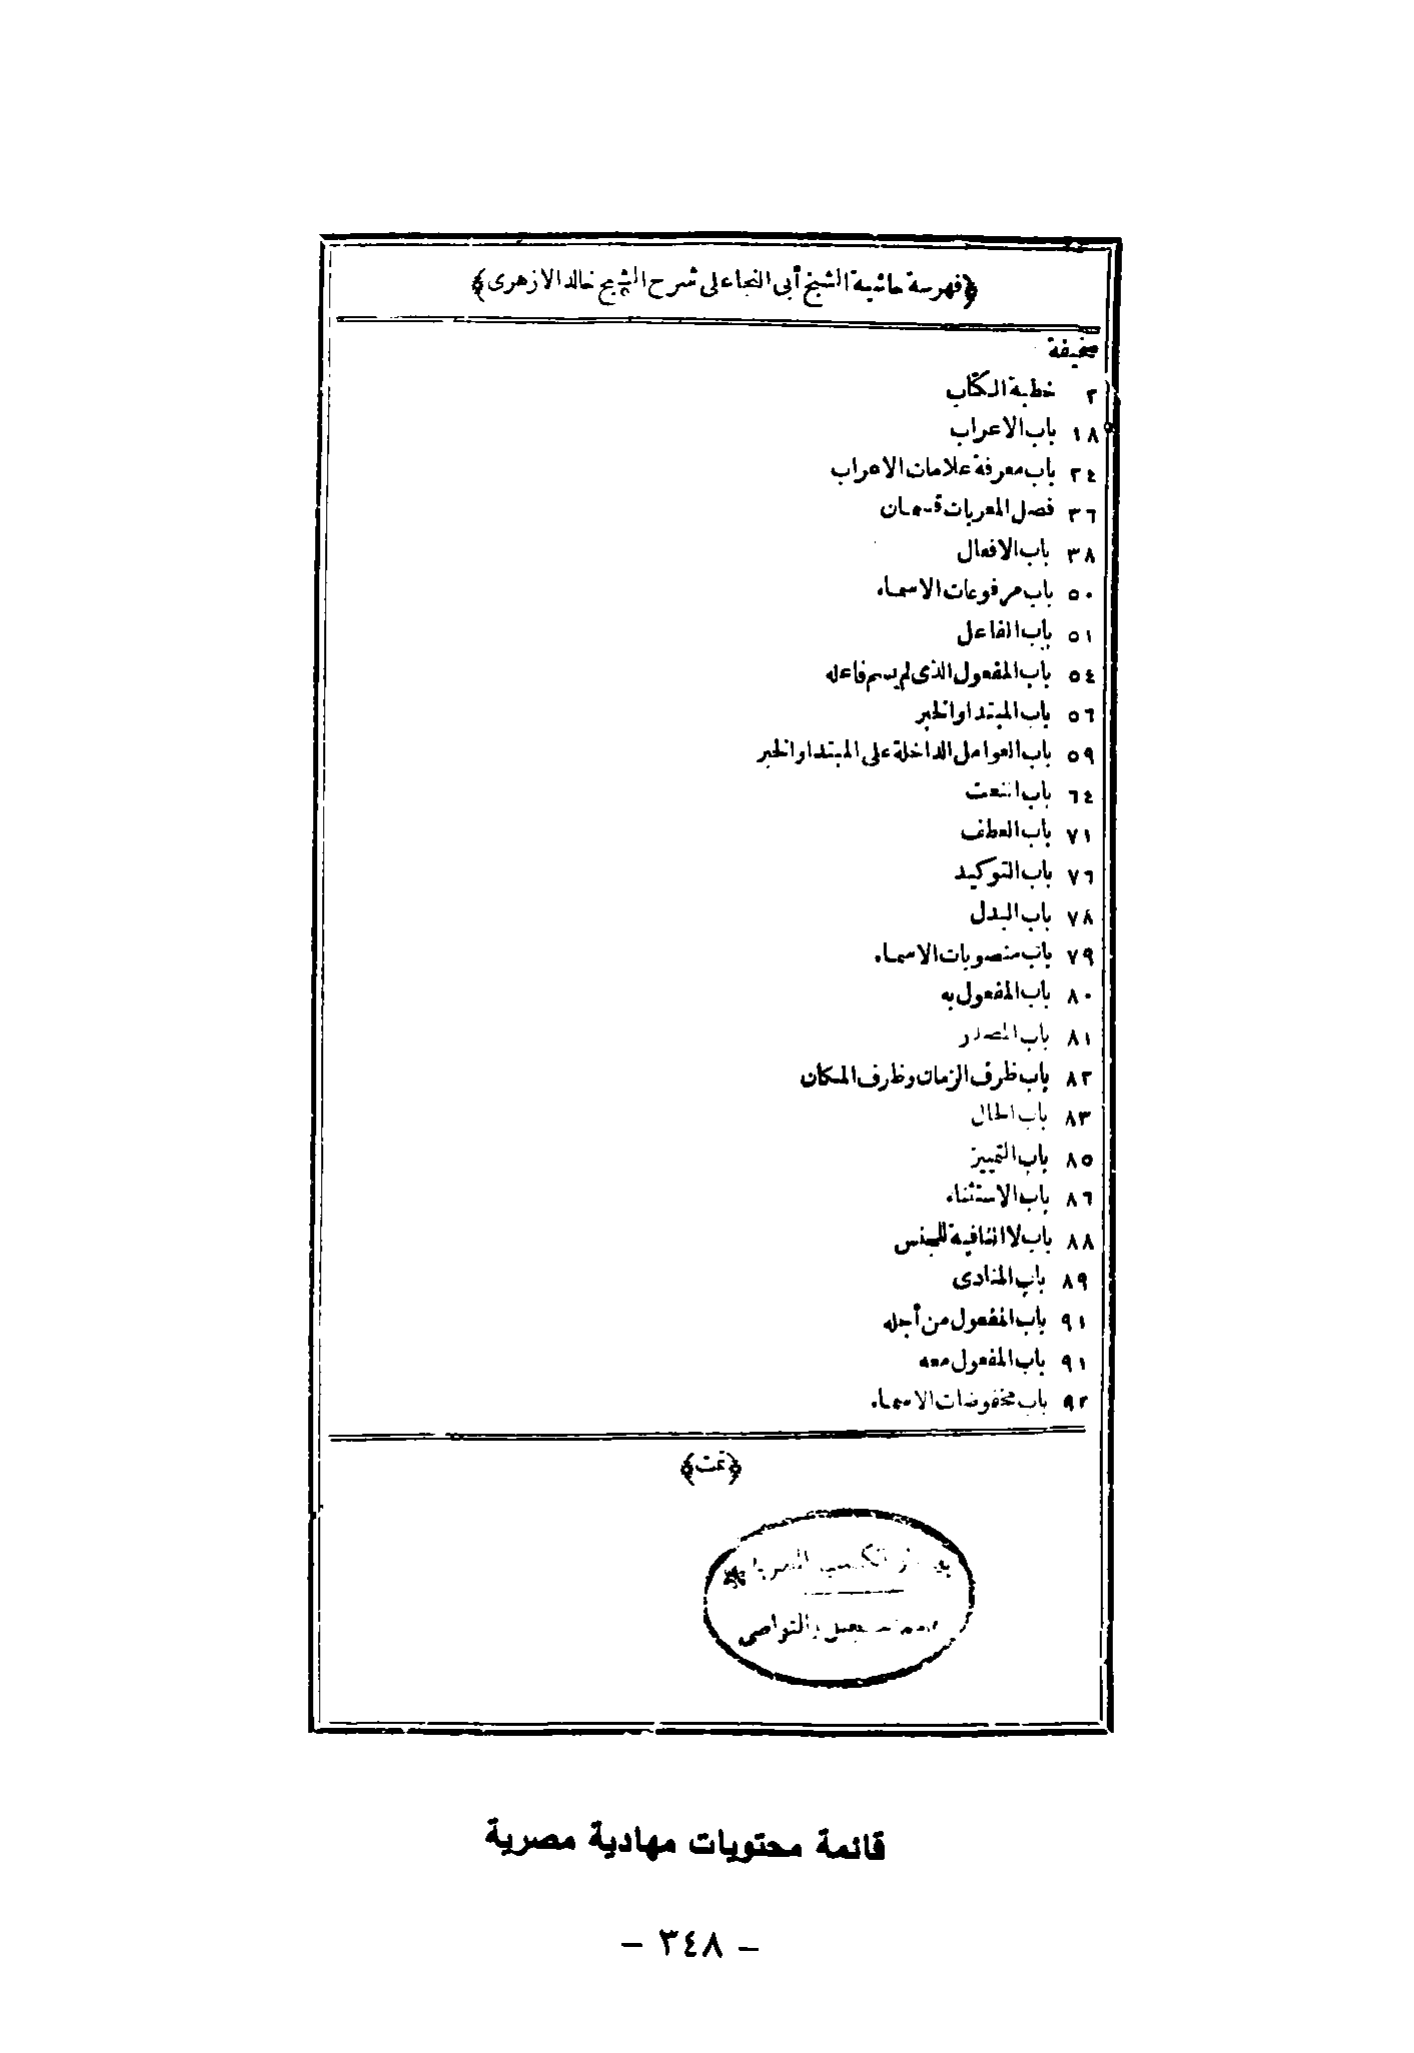 ﴿فهرسة حاشية الشيخ أبى النجا على شرح الشيخ خالد الازهرى﴾
صحيفة
٢ خطبة الكتاب
١٨ باب الاعراب
٢٤ باب معرفة علامات الاعراب
٣٦ فصل المعربات قسمان
٣٨ باب الافعال
٥٠ باب مرفوعات الاسماء
٥١ باب الفاعل
٥٤ باب المفعول الذى لم يسم فاعله
٥٦ باب المبتدا والخبر
٥٩ باب العوامل الداخلة على المبتدا والخبر
٦٤ باب النعت
٧١ باب العطف
٧٦ باب التوكيد
٧٨ باب البدل
٧٩ باب منصوبات الاسماء
٨٠ باب المفعول به
٨١ باب المصدر
٨٢ باب ظرف الزمان وظرف المكان
٨٣ باب الحال
٨٥ باب التمييز
٨٦ باب الاستثناء
٨٨ باب لا النافية للجنس
٨٩ باب المنادى
٩١ باب المفعول من أجله
٩١ باب المفعول معه
٩٢ باب مخفوضات الاسماء
﴿تمت﴾
قائمة محتويات مهادية مصرية
- ٣٤٨ -